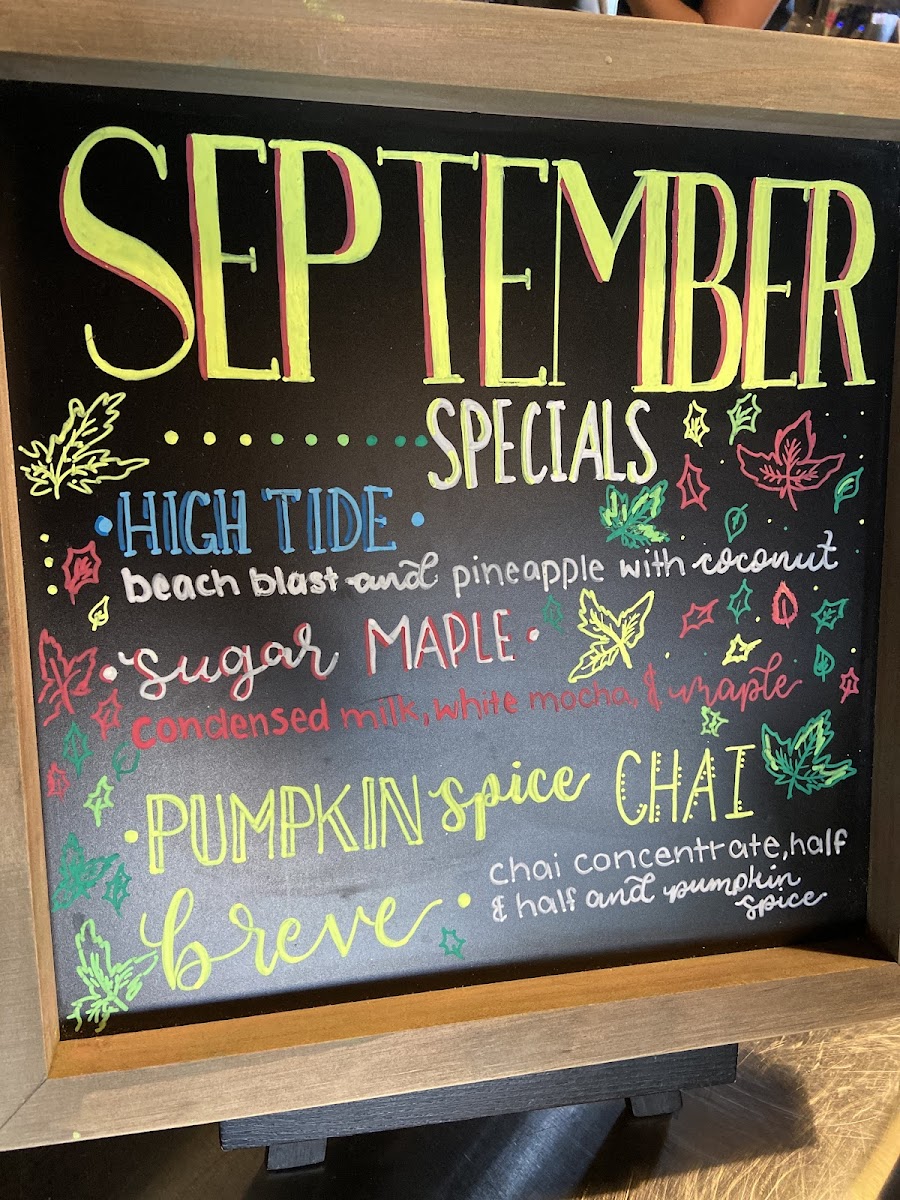 SEPTEMBER
SPECIALS
HIGH TIDE
beach blast and pineapple with coconut
sugar MAPLE
condensed milk, white mocha, & maple
PUMPKIN spice CHAI
breve
chai concentrate, half
& half and pumpkin
spice